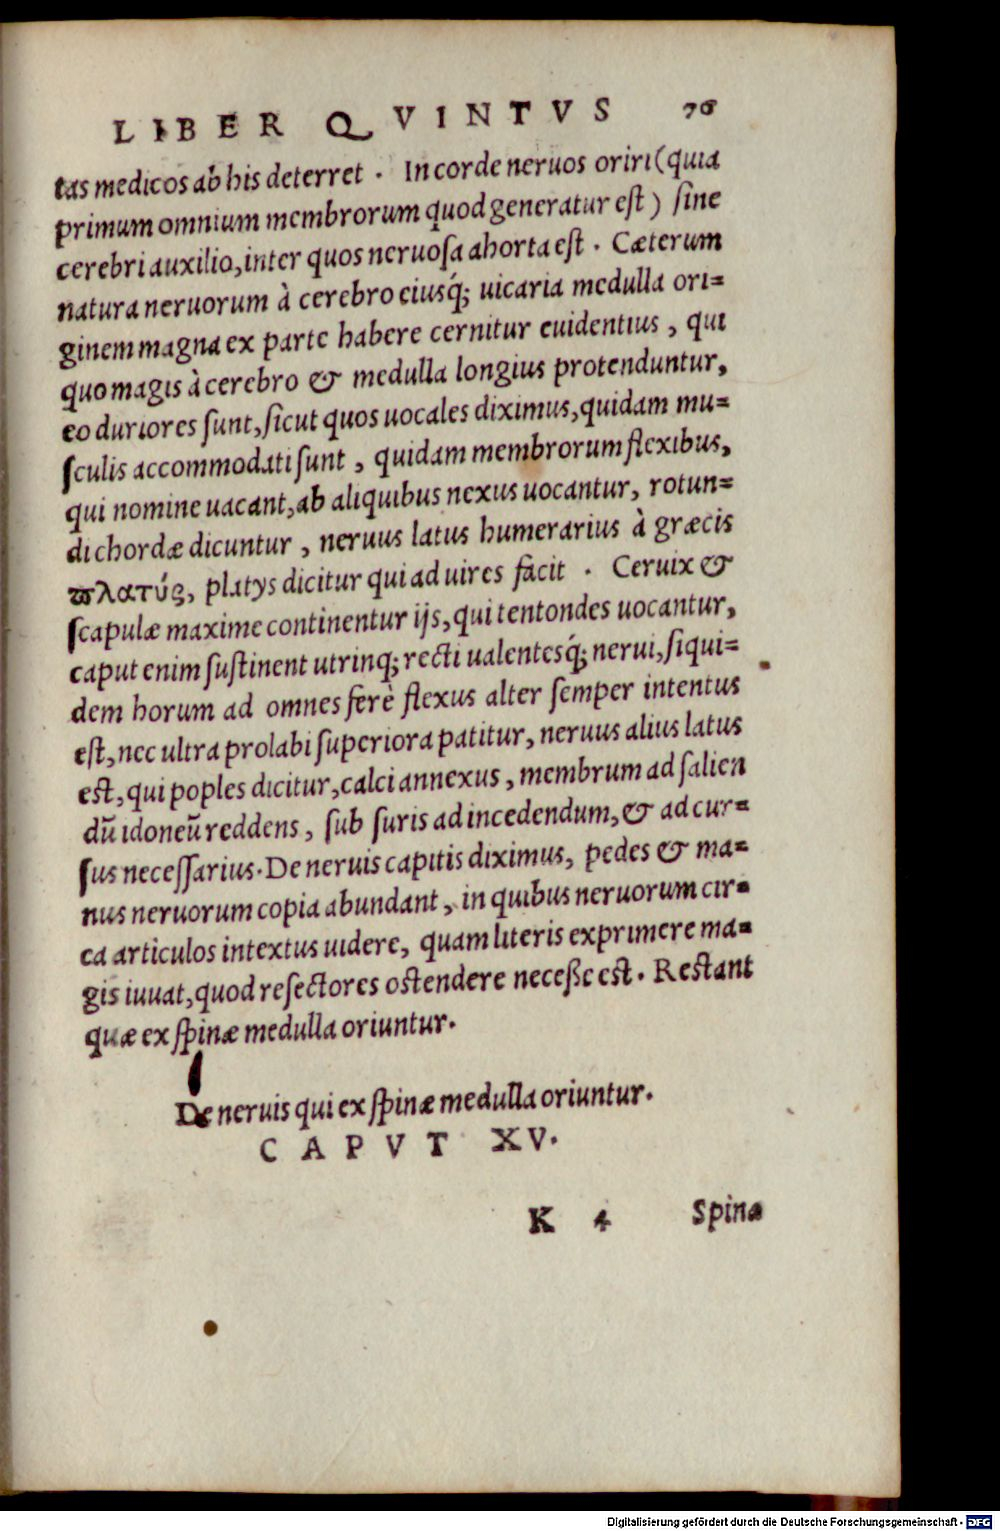 LIBER QVINTVS 76
tas medicos ab his deterret . In corde neruos oriri (quia
primum omnium membrorum quod generatur est ) sine
cerebri auxilio, inter quos neruosa ahorta est . Cæterum
natura neruorum à cerebro eiusq́; uicaria medulla ori=
ginem magna ex parte habere cernitur euidentius , qui
quo magis à cerebro & medulla longius protenduntur,
eo duriores sunt, sicut quos uocales diximus, quidam mu=
sculis accommodati sunt , quidam membrorum flexibus,
qui nomine uacant, ab aliquibus nexus uocantur, rotun=
di chordæ dicuntur , neruus latus humerarius à græcis
πλατύς, platys dicitur qui ad uires facit . Ceruix &
scapulæ maxime continentur ijs, qui tentondes uocantur,
caput enim sustinent utrinq; recti ualentesq́; nerui, siqui=
dem horum ad omnes ferè flexus alter semper intentus
est, nec ultra prolabi superiora patitur, neruus alius latus
est, qui poples dicitur, calci annexus , membrum ad salien
dū idoneū reddens , sub suris ad incedendum, & ad cur=
sus necessarius. De neruis capitis diximus, pedes & ma=
nus neruorum copia abundant , in quibus neruorum cir=
ca articulos intextus uidere, quam literis exprimere ma=
gis iuuat, quod resectores ostendere necesse est . Restant
quæ ex spinæ medulla oriuntur.
De neruis qui ex spinæ medulla oriuntur.
CAPVT XV.
K 4 Spina
Digitalisierung gefördert durch die Deutsche Forschungsgemeinschaft - DFG